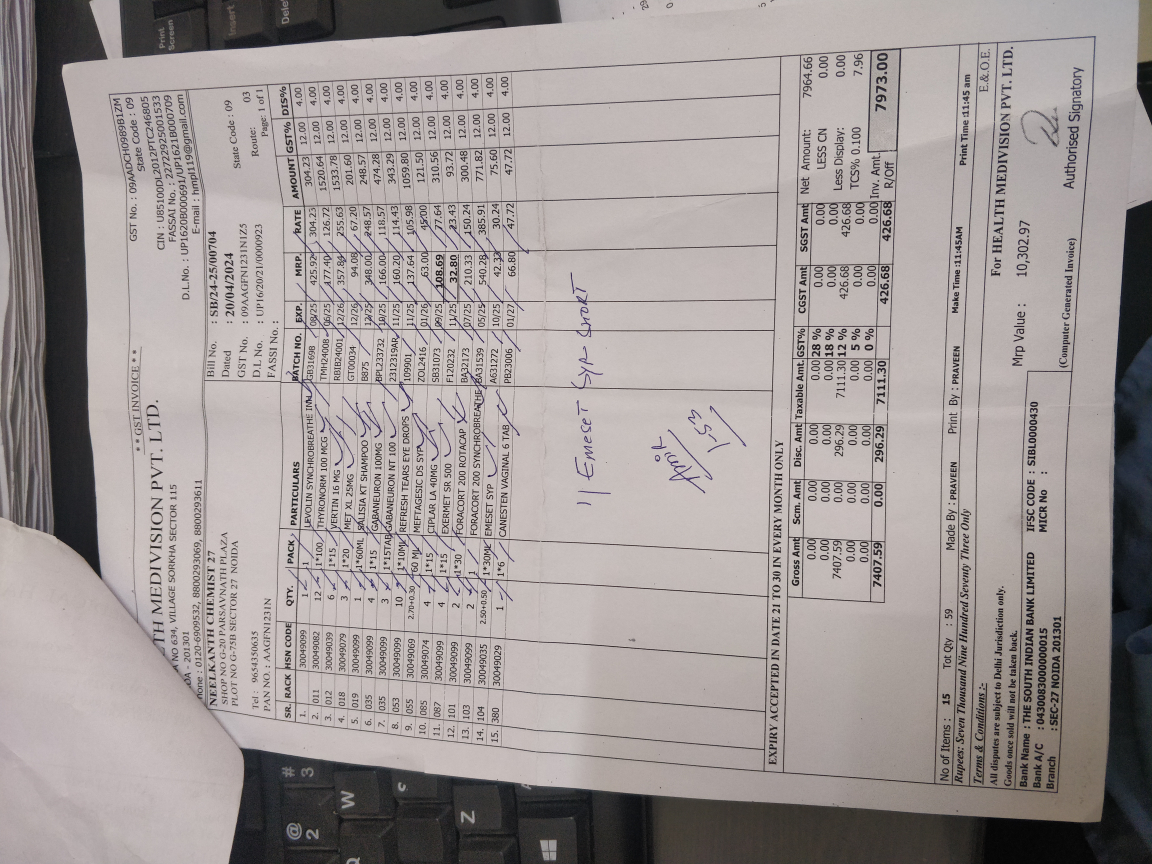 ** GST INVOICE **
GST No. : 09AADCH0989B1ZM
State Code : 09
TH MEDIVISION PVT. LTD.
CIN : U85100DL2012PTC246805
NO 634, VILLAGE SORKHA SECTOR 115
FASSAI No. : 22722925001533
DA - 201301
D.L.No. : UP1620B000691/UP1621B000709
hone : 0120-6909532, 8800293069, 8800293611
E-mail : hmpl119@gmail.com
NEELKANTH CHEMIST 27
SHOP NO G-20 PARSAVNATH PLAZA
PLOT NO G-75B SECTOR 27 NOIDA
Tel : 9654350635
PAN NO. : AAGFN1231N
Bill No. : SB/24-25/00704
Dated : 20/04/2024
GST No. : 09AAGFN1231N1Z5 State Code : 09
D.L No. : UP16/20/21/0000923 Route: 03
FASSI No. : Page: 1 of 1
SR. RACK HSN CODE QTY. PACK PARTICULARS BATCH NO. EXP. MRP. RATE AMOUNT GST% DIS%
1. 30049099 1 1 LEVOLIN SYNCHROBREATHE INH GB31698 08/25 425.92 304.23 304.23 12.00 4.00
2. 011 30049082 12 1*100 THYRONORM 100 MCG TMH24008 06/25 177.40 126.72 1520.64 12.00 4.00
3. 012 30049039 6 1*15 VERTIN 16 MG RBIB24001 12/26 357.84 255.63 1533.78 12.00 4.00
4. 018 30049079 3 1*20 MET XL 25MG GT00034 12/26 94.08 67.20 201.60 12.00 4.00
5. 019 30049099 1 1*60ML SALISIA KT SHAMPOO B875 12/25 348.00 248.57 248.57 12.00 4.00
6. 035 30049099 4 1*15 GABANEURON 100MG BPL233732 10/25 166.00 118.57 474.28 12.00 4.00
7. 035 30049099 3 1*15TAB GABANEURON NT 100 2312319AR 11/25 160.20 114.43 343.29 12.00 4.00
8. 053 30049099 10 1*10ML REFRESH TEARS EYE DROPS 109901 11/25 137.64 105.98 1059.80 12.00 4.00
9. 055 30049069 2.70+0.30 60 ML MEFTAGESIC DS SYP ZOL2416 01/26 63.00 45.00 121.50 12.00 4.00
10. 085 30049074 4 1*15 CIPLAR LA 40MG SB31073 09/25 108.69 77.64 310.56 12.00 4.00
11. 087 30049099 4 1*15 EXERMET SR 500 F120232 11/25 32.80 23.43 93.72 12.00 4.00
12. 101 30049099 2 1*30 FORACORT 200 ROTACAP BA32173 07/25 210.33 150.24 300.48 12.00 4.00
13. 103 30049099 2 1 FORACORT 200 SYNCHROBREATHE BA31539 05/25 540.28 385.91 771.82 12.00 4.00
14. 104 30049035 2.50+0.50 1*30ML EMESET SYP A631272 10/25 42.33 30.24 75.60 12.00 4.00
15. 380 30049029 1 1*6 CANESTEN VAGINAL 6 TAB PB23006 01/27 66.80 47.72 47.72 12.00 4.00
Emeset Syp short
EXPIRY ACCEPTED IN DATE 21 TO 30 IN EVERY MONTH ONLY
Gross Amt Scm. Amt Disc. Amt Taxable Amt. GST% CGST Amt SGST Amt Net Amount: 7964.66
0.00 0.00 0.00 0.00 28 % 0.00 0.00 LESS CN 0.00
0.00 0.00 0.00 0.00 18 % 0.00 0.00 Less Display: 0.00
7407.59 0.00 296.29 7111.30 12 % 426.68 426.68 TCS% 0.100 7.96
0.00 0.00 0.00 0.00 5 % 0.00 0.00
0.00 0.00 0.00 0.00 0 % 0.00 0.00 Inv. Amt. 7973.00
7407.59 0.00 296.29 7111.30 426.68 426.68 R/Off
No of Items : 15 Tot Qty : 59 Made By : PRAVEEN Print By : PRAVEEN Make Time :11:45AM Print Time :11:45 am
Rupees: Seven Thousand Nine Hundred Seventy Three Only
E.& O.E.
Terms & Conditions :-
All disputes are subject to Delhi Jurisdiction only.
Goods once sold will not be taken back.
For HEALTH MEDIVISION PVT. LTD.
Bank Name : THE SOUTH INDIAN BANK LIMITED IFSC CODE : SIBL0000430 Mrp Value : 10,302.97
Bank A/C : 0430083000000015 MICR No :
Branch : SEC-27 NOIDA 201301
(Computer Generated Invoice)
Authorised Signatory
Print Screen
Insert
Dele
# 3
@ 2
W
Z